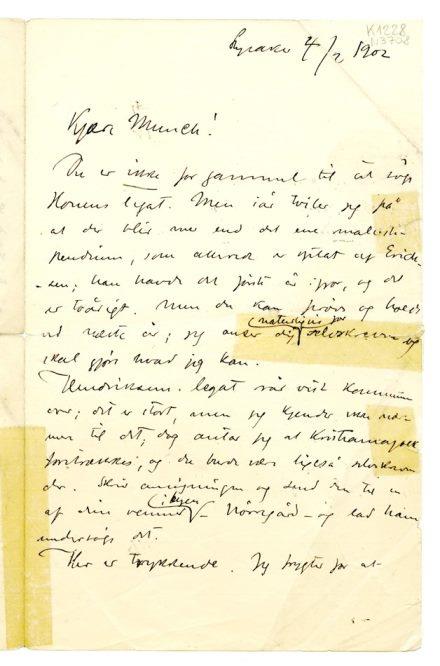 K1228
N3708
Lysaker 4/2 1902
Kjære Munch!
Du er ikke for gammel til at søge
Hounens legat. Men iår tviler jeg på
at der blir mer end det ene maler sti-
pendium, som allerede er optat af Erich-
sen; han havde det første år ifjor, og det
er toårigt. Men du kan prøve og
ved næste år; jeg anser dig naturligvis for selvskreven og
skal gjøre hvad jeg kan.
Hendrichsens legat rår vist Kommunen
over; det er stort, men jeg kjender ikke
til det, dog antar jeg at Kristianiafolk
foretrækkes, og du burde være ligeså selvskreven
der. Skriv ansøgningen og send den til en
af dine venner i byen – Nørregård – og lad ham
undersøge det.
Her er trykkende. Jeg frygter for at